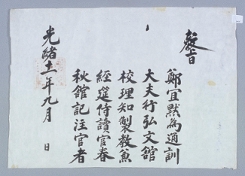 敎旨
鄭宜默爲通訓
大夫行弘文館
校理知製敎兼
經筵侍讀官春
秋館記注官者
光緖十一年九月　日